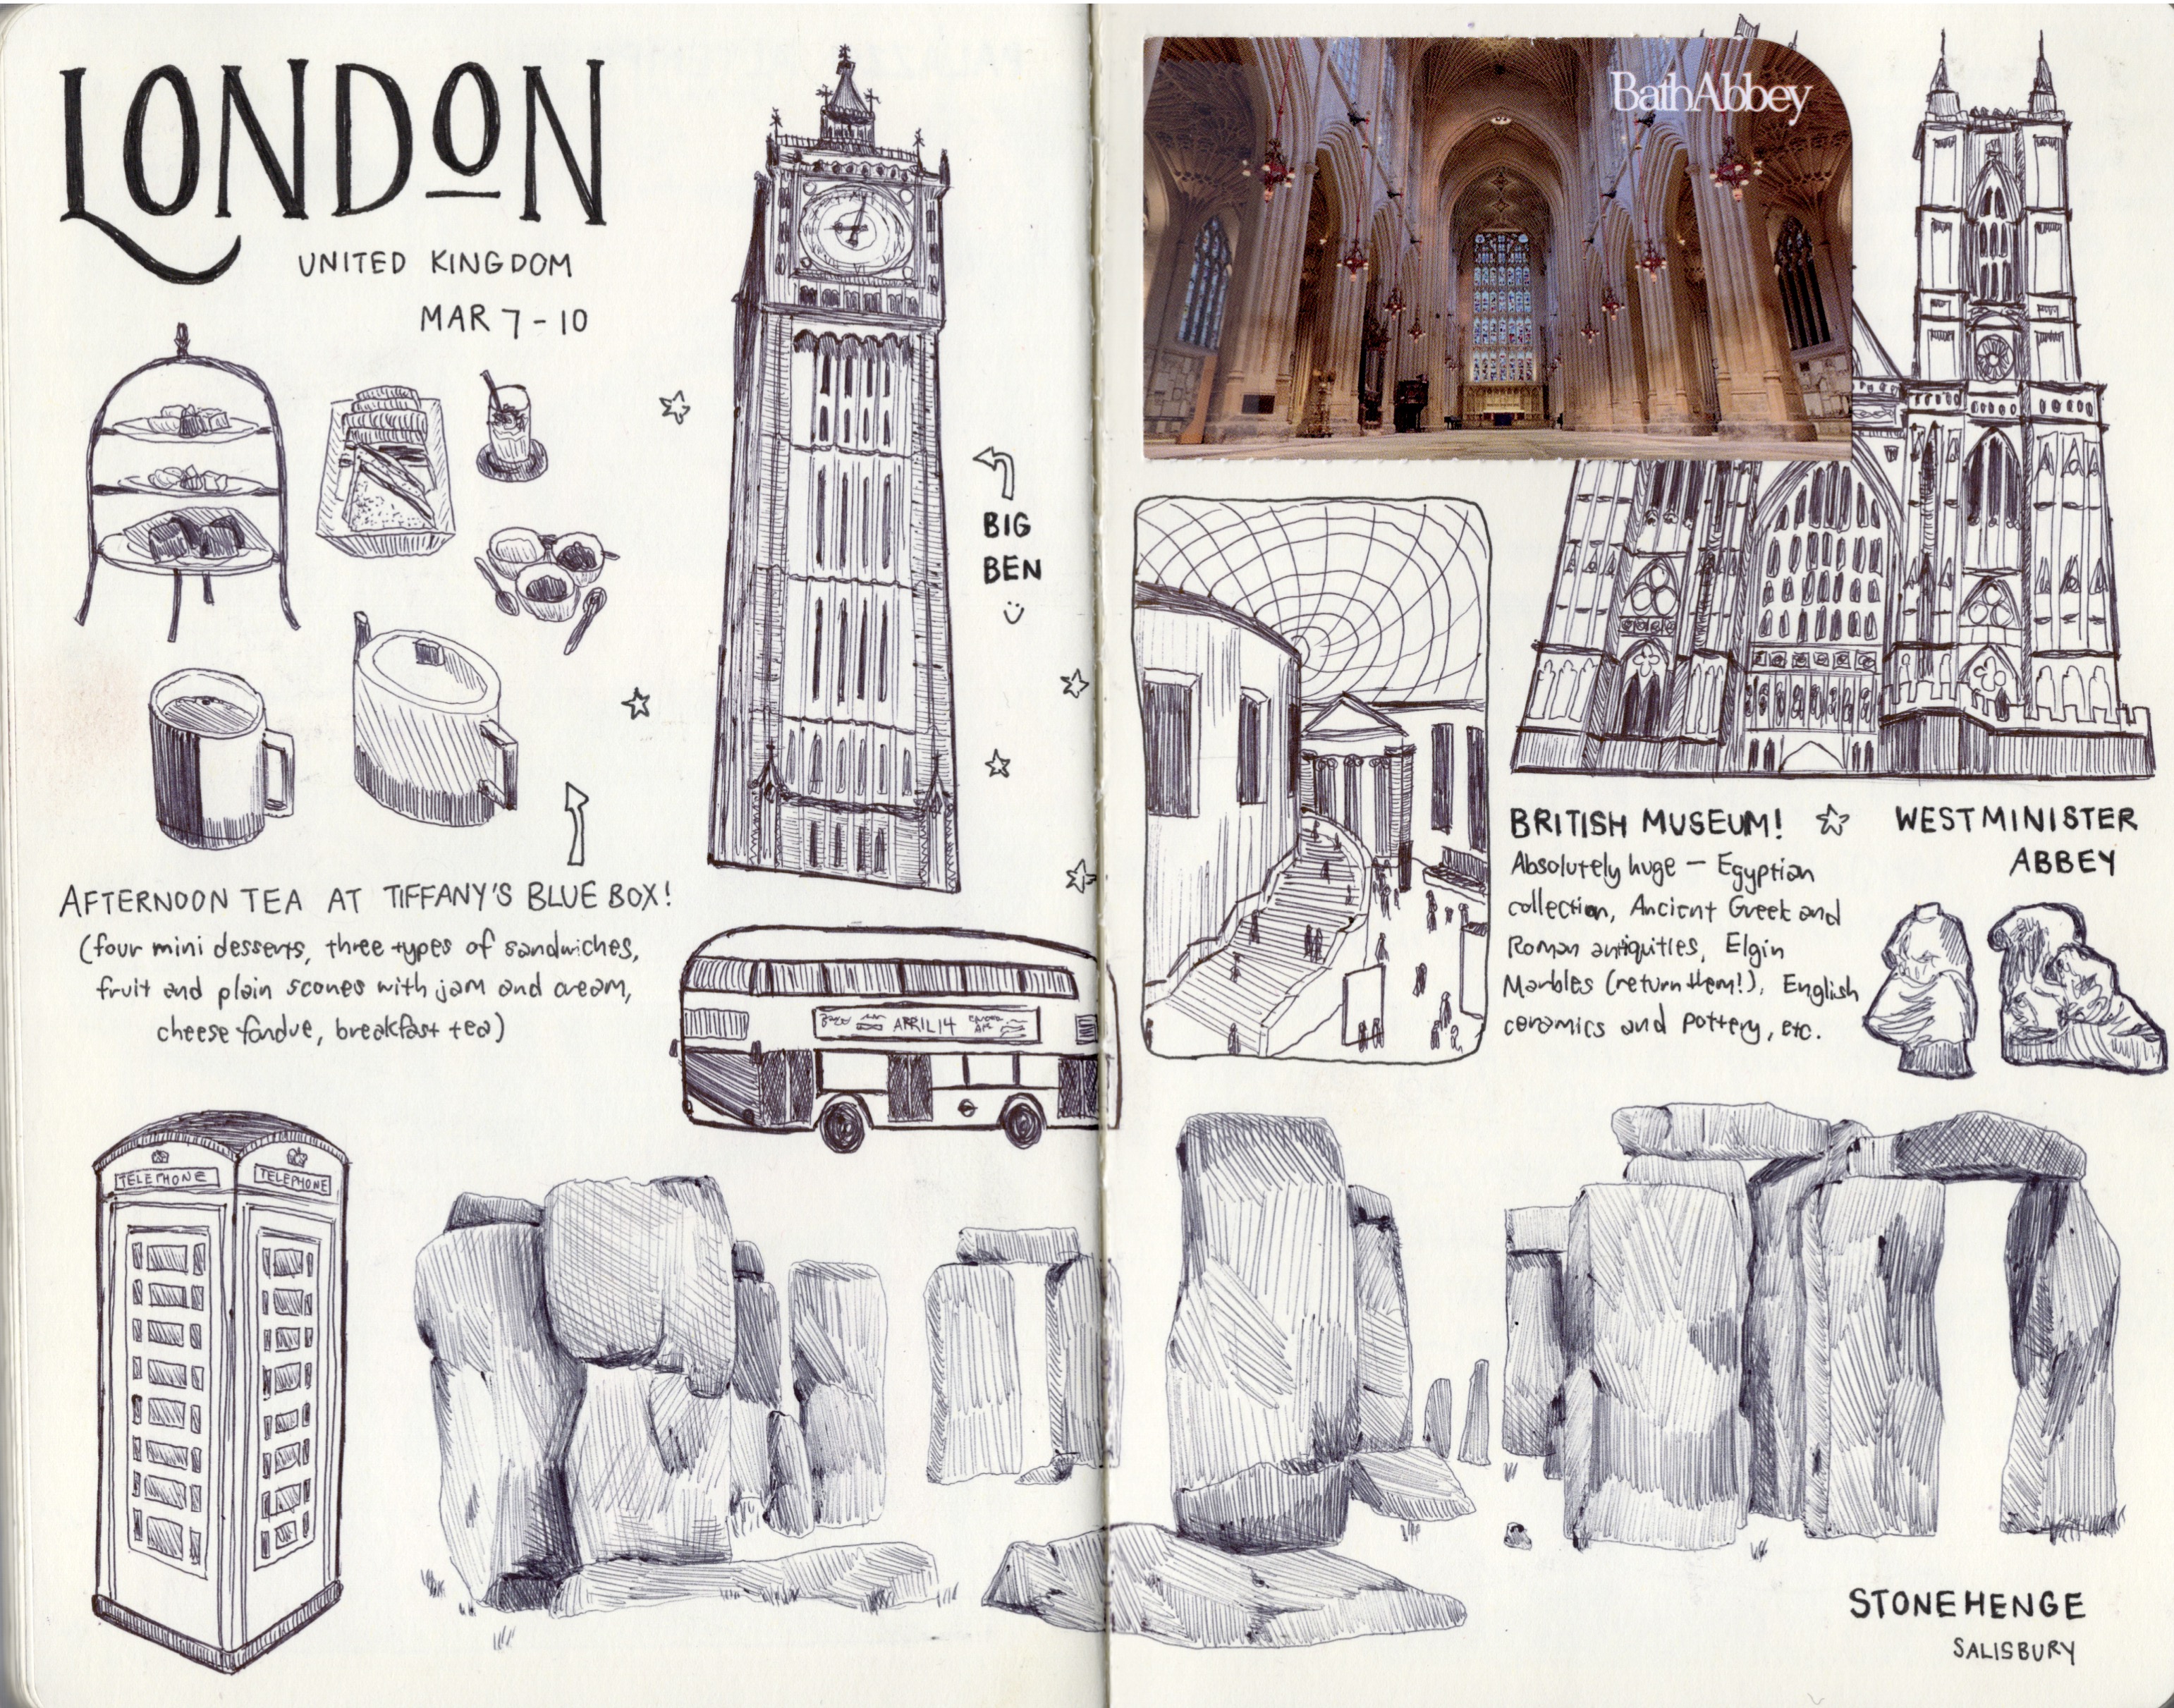 LONDON
UNITED KINGDOM
MAR 7 - 10
BIG
BEN
AFTERNOON TEA AT TIFFANY'S BLUE BOX!
(four mini desserts, three types of sandwiches,
fruit and plain scones with jam and cream,
cheese fondue, breakfast tea)
APRIL 14
TELEPHONE
TELEPHONE
BathAbbey
BRITISH MUSEUM!
Absolutely huge — Egyptian
collection, Ancient Greek and
Roman antiquities, Elgin
Marbles (return them!), English
ceramics and pottery, etc.
WESTMINISTER
ABBEY
STONEHENGE
SALISBURY